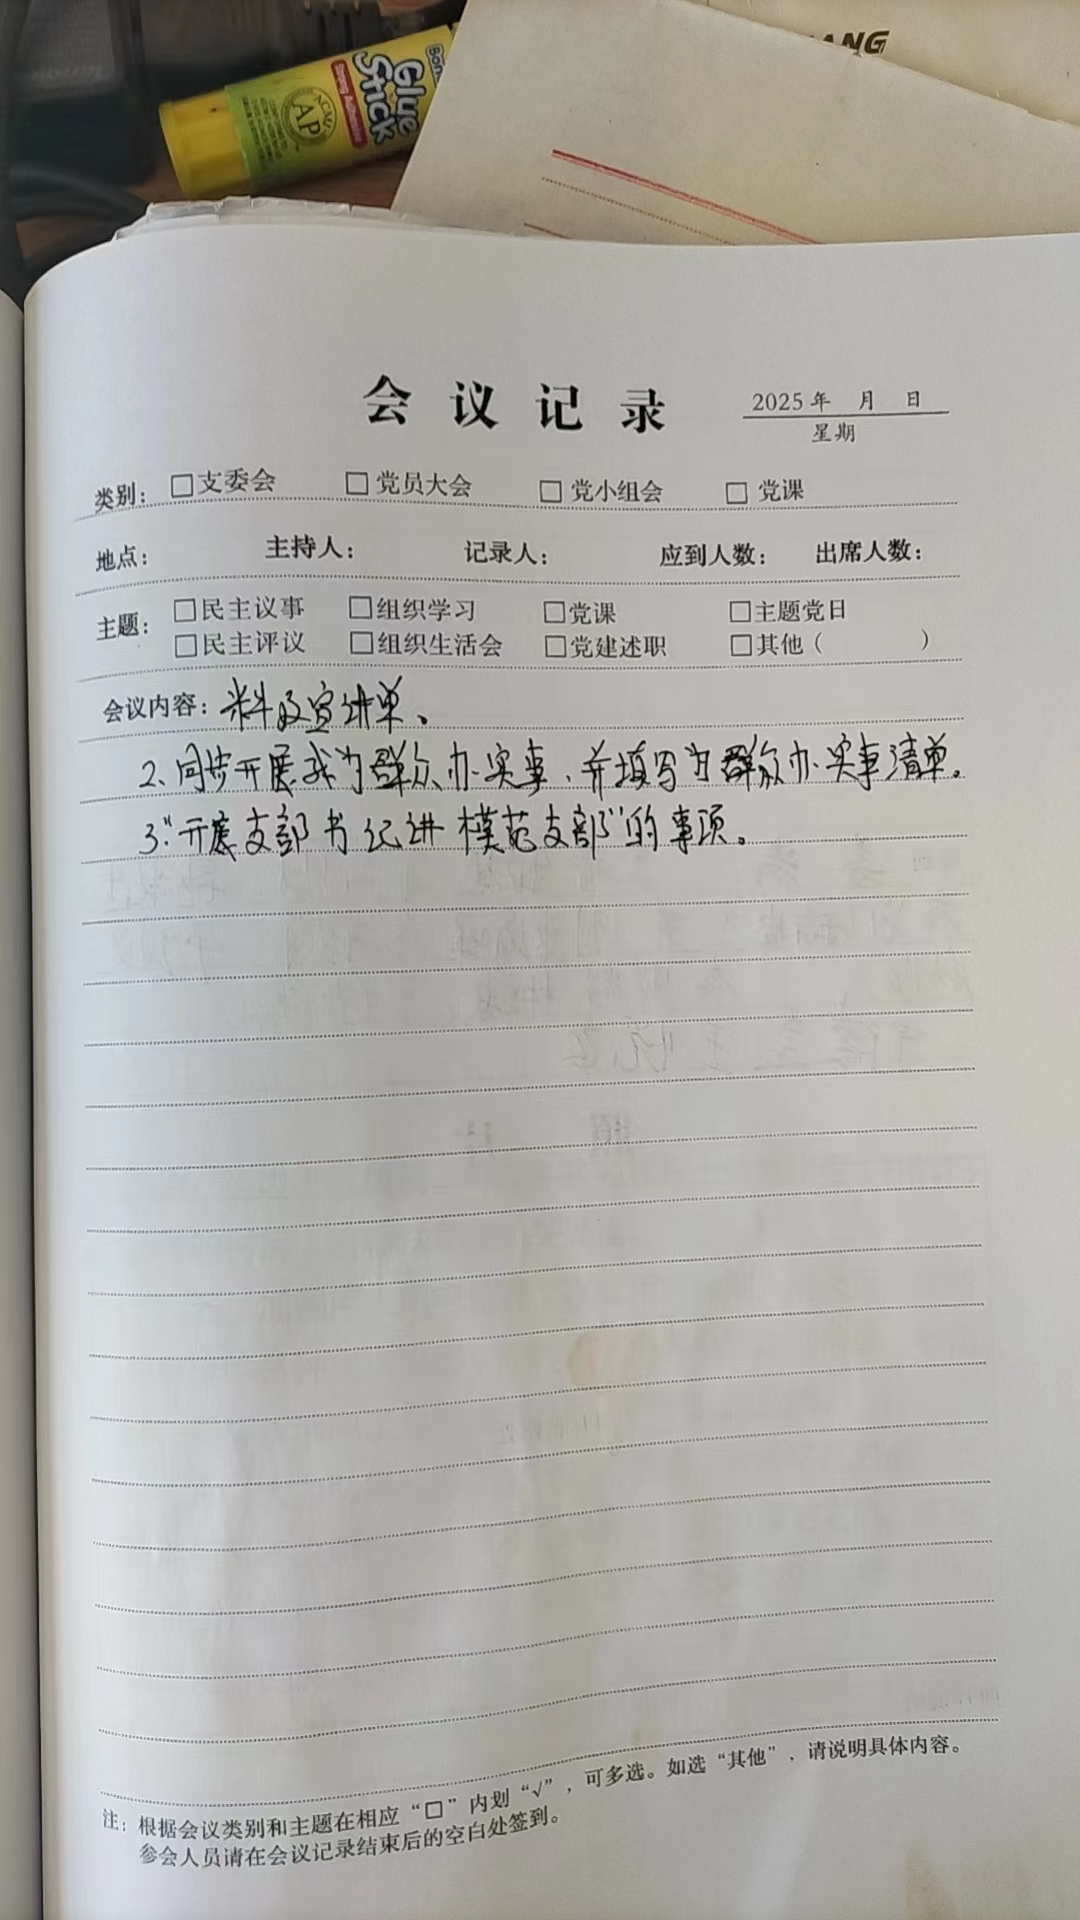 ANG
Glue Stick
Strong Adhesive
AP
会议记录
2025年 月 日
星期
类别: □支委会 □党员大会 □党小组会 □党课
地点: 主持人: 记录人: 应到人数: 出席人数:
主题: □民主议事 □组织学习 □党课 □主题党日
□民主评议 □组织生活会 □党建述职 □其他( )
会议内容: 料及宣讲单。
2、同步开展我为群众办实事、并填写为群众办实事清单。
3、“开展支部书记讲模范支部”的事项。
注: 根据会议类别和主题在相应“□”内划“√”,可多选。如选“其他”,请说明具体内容。
参会人员请在会议记录结束后的空白处签到。